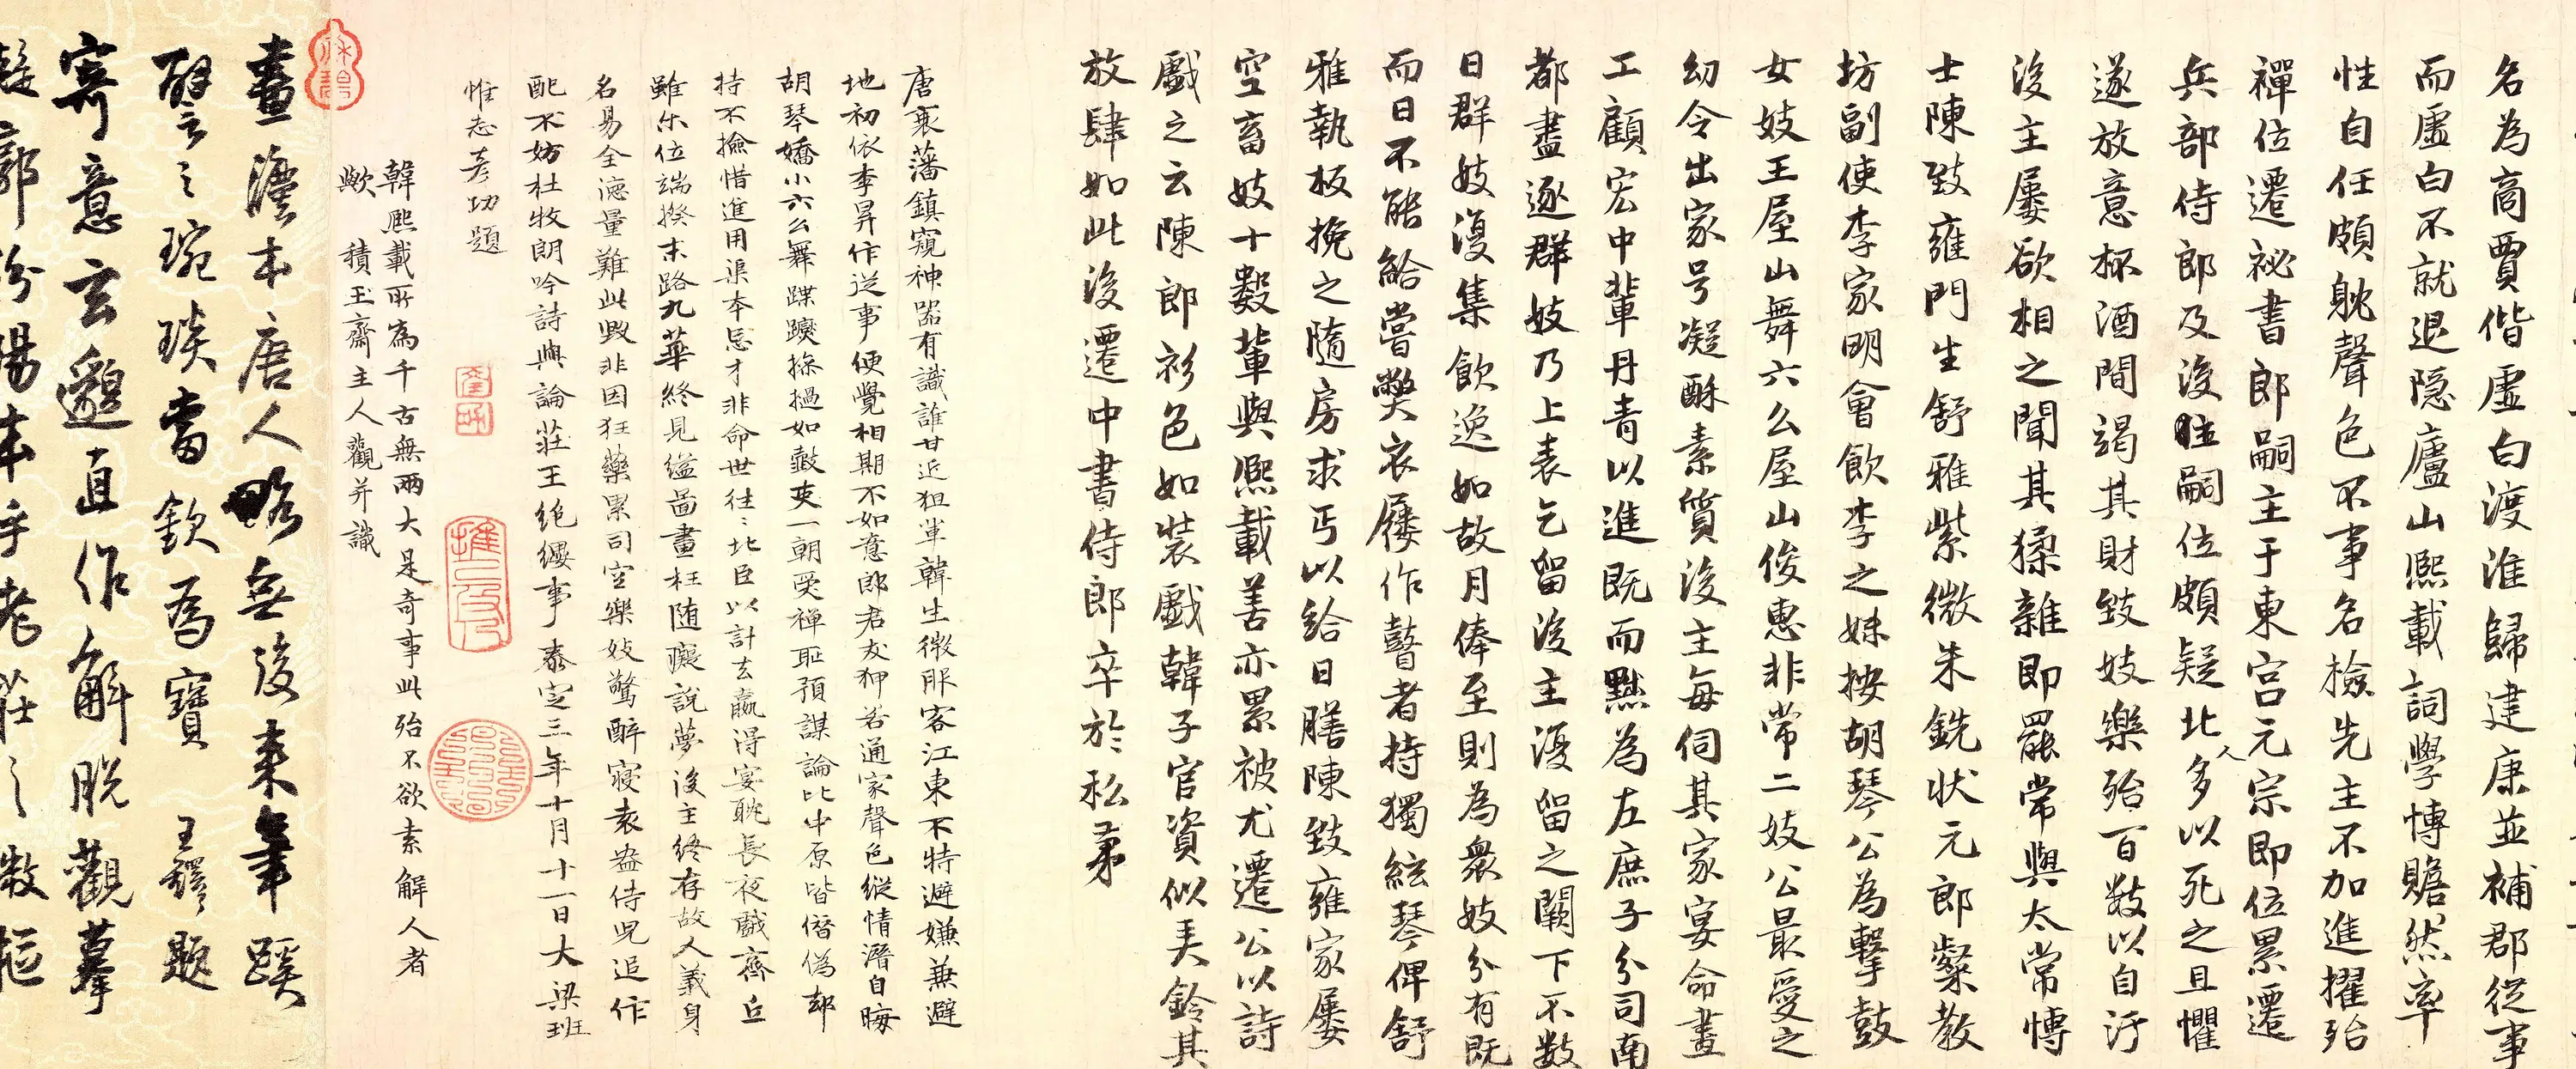 名為高賈偕虛白渡淮歸建康並補郡從事
而虛白不就退隱廬山熙載詞學博贍然率
性自任頗躭聲色不事名檢先主不加進擢殆
禪位遷祕書郎嗣主于東宮元宗即位累遷
兵部侍郎及後主嗣位頗疑北人多以死之且懼
遂放意杯酒間竭其財致妓樂殆百數以自汙
後主屢欲相之聞其猱雜即罷常與太常博
士陳致雍門生舒雅紫微朱銑狀元郎粲教
坊副使李家明會飲李之妹按胡琴公為擊鼓
女妓王屋山舞六么屋山俊惠非常二妓公最愛之
幼令出家号凝酥素質後主每伺其家宴命畫
工顧宏中輩丹青以進既而黜為左庶子分司南
都盡逐群妓乃上表乞留後主復留之闕下不數
日群妓復集飲逸如故月俸至則為眾妓分有既
而日不能給嘗獘衣屨作瞽者持獨絃琴俾舒
雅執板挽之隨房求丐以給日膳陳致雍家屢
空畜妓十數輩與熙載善亦累被尤遷公以詩
戲之云陳郎衫色如裝戲韓子官資似美鈴其
放肆如此後遷中書侍郎卒於私苐
唐衰藩鎮窺神器有識誰甘近狙軰韓生微服客江東不特避嫌兼避
地初依李昇作逆事便覺相期不如意郎君友狎若通家聲色縱情潛自晦
胡琴嬌小六么舞蹀躞摻撾如鼓吏一朝受禪耻預謀論比中原皆僭偽却
持不撿惜進用渠本忌才非命世往〻北臣以計去贏得宴躭長夜戲齊丘
雖尔位端揆末路九華終見縊畫圖枉随癡說夢後主終存故人義身
名易全德量難此毀非因狂藥累司空樂妓驚醉寢袁盎侍兒追作
配不妨杜牧朗吟詩與論莊王絕纓事泰定三年十月十一日大梁班
惟志彥功題
韓熙載所為千古無兩大是奇事此殆不欲索解人者
歟 積玉齋主人觀并識
畫瀍本唐人略無後來筆蹊
譬之琬琰當欽為寶 王鐸題
寄意玄邈直作解脫觀摹
擬郭汾陽本乎老莊之微樞